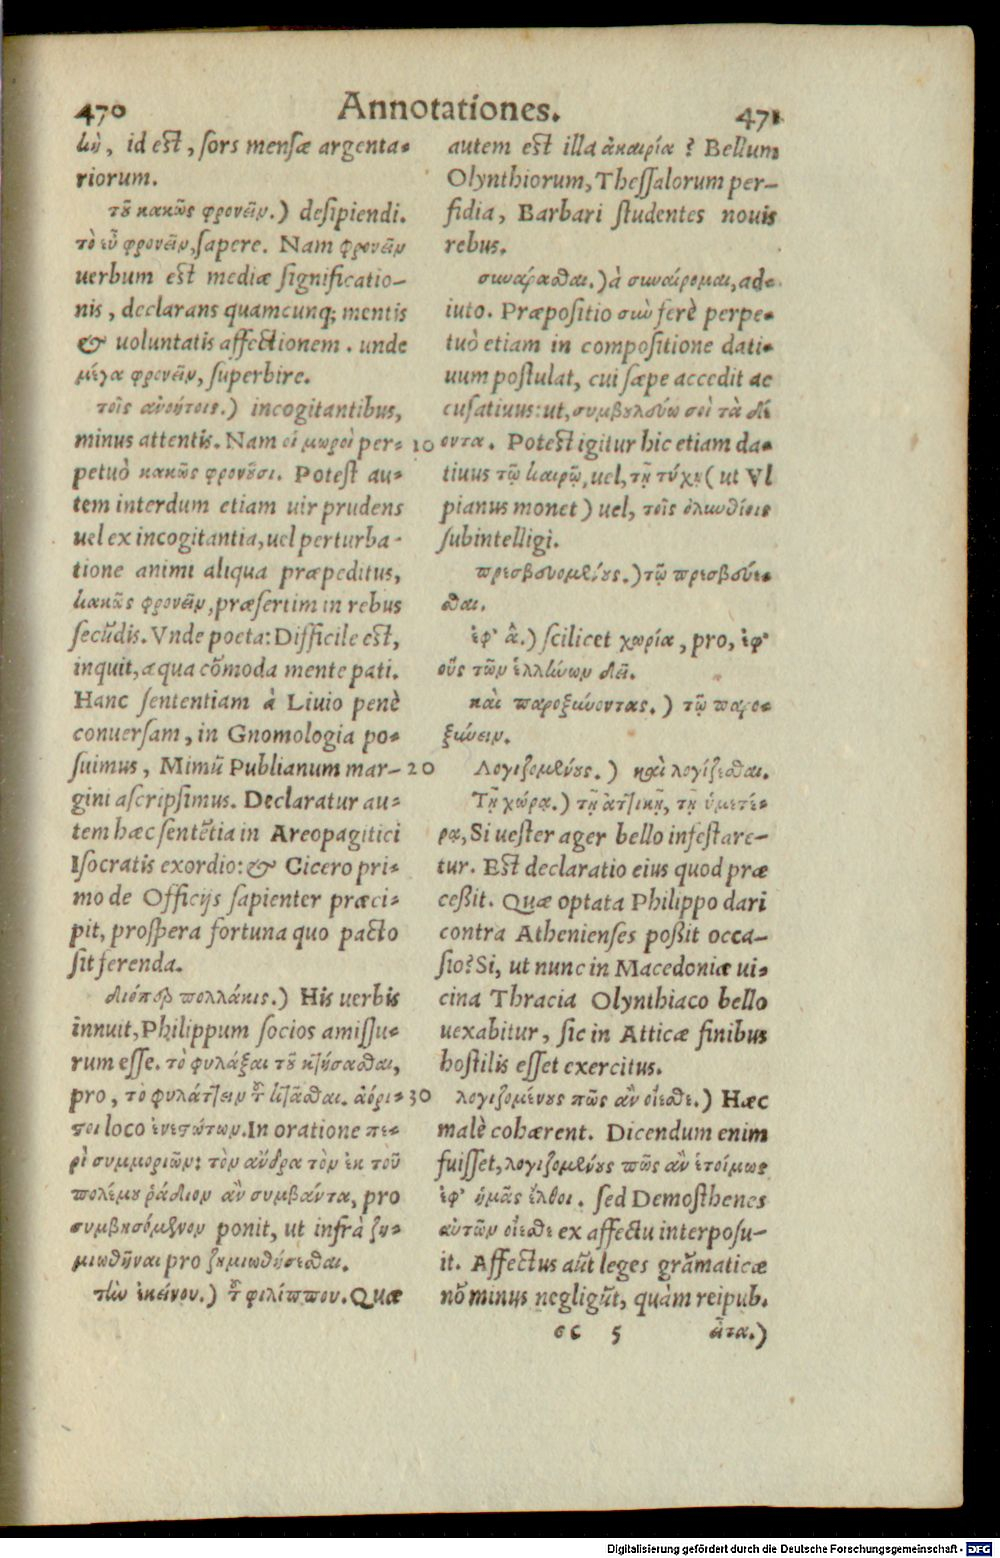 470
Annotationes.
471
κὴ, id est, sors mensæ argenta-
riorum.
τοῦ κακῶς φρονεῖν.) desipiendi.
τὸ εὖ φρονεῖν, sapere. Nam φρονεῖν
uerbum est mediæ significatio-
nis, declarans quamcunq; mentis
& uoluntatis affectionem. unde
μέγα φρονεῖν, superbire.
τοῖς ἀνοήτοις.) incogitantibus,
minus attentis. Nam οἱ μωροὶ per-
petuò κακῶς φρονοῦσι. Potest au-
tem interdum etiam uir prudens
uel ex incogitantia, uel perturba-
tione animi aliqua præpeditus,
κακῶς φρονεῖν, præsertim in rebus
secūdis. Vnde poeta: Difficile est,
inquit, æqua cōmoda mente pati.
Hanc sententiam à Liuio penè
conuersam, in Gnomologia po-
suimus, Mimū Publianum mar-
gini ascripsimus. Declaratur au-
tem hæc sentētia in Areopagitici
Isocratis exordio: & Cicero pri-
mo de Officijs sapienter præci-
pit, prospera fortuna quo pacto
sit ferenda.
διόπερ πολλάκις.) His uerbis
innuit, Philippum socios amissu-
rum esse. τὸ φυλάξαι τοῦ κτήσασθαι,
pro, τὸ φυλάττειν τοῦ κτᾶσθαι. ἀόρι-
στοι loco ἐνεστώτων. In oratione πε-
ρὶ συμμοριῶν: τὸν ἄνδρα τὸν ἐκ τοῦ
πολέμου ῥάδιον ἂν συμβάντα, pro
συμβησόμενον ponit, ut infrà ζη-
μιωθῆναι pro ζημιωθήσεσθαι.
τὴν ἐκείνου.) τοῦ φιλίππου. Quæ
10
20
30
autem est illa ἀκαιρία? Bellum
Olynthiorum, Thessalorum per-
fidia, Barbari studentes nouis
rebus.
συναίρασθαι.) à συναίρομαι, ad-
iuto. Præpositio σὺν ferè perpe-
tuò etiam in compositione dati-
uum postulat, cui sæpe accedit ac
cusatiuus: ut, συμβουλεύω σοὶ τὰ δέ
οντα. Potest igitur hic etiam da-
tiuus τῷ καιρῷ, uel, τῇ τύχῃ (ut Vl
pianus monet) uel, τοῖς ὀλυνθίοις
subintelligi.
πρεσβευομένους.) τῷ πρεσβεύε-
σθαι.
ἐφ' ἃ.) scilicet χωρία, pro, ἐφ'
οὓς τῶν ἑλλήνων δεῖ.
καὶ παροξύνοντας.) τῷ παρο-
ξύνειν.
Λογιζομένους.) καὶ λογίζεσθαι.
Τῇ χώρᾳ.) τῇ ἀττικῇ, τῇ ὑμετέ-
ρᾳ, Si uester ager bello infestare-
tur. Est declaratio eius quod præ
ceßit. Quæ optata Philippo dari
contra Athenienses poßit occa-
sio? Si, ut nunc in Macedoniæ ui-
cina Thracia Olynthiaco bello
uexabitur, sic in Atticæ finibus
hostilis esset exercitus.
λογιζομένους πῶς ἂν οἴεσθε.) Hæc
malè cohærent. Dicendum enim
fuisset, λογιζομένους πῶς ἂν ἑτοίμως
ἐφ' ὑμᾶς ἔλθοι. sed Demosthenes
αὐτῶν οἴεσθε ex affectu interposu-
it. Affectus aūt leges grāmaticæ
nō minus negligūt, quàm reipub.
cc 5 εἶτα.)
Digitalisierung gefördert durch die Deutsche Forschungsgemeinschaft - DFG